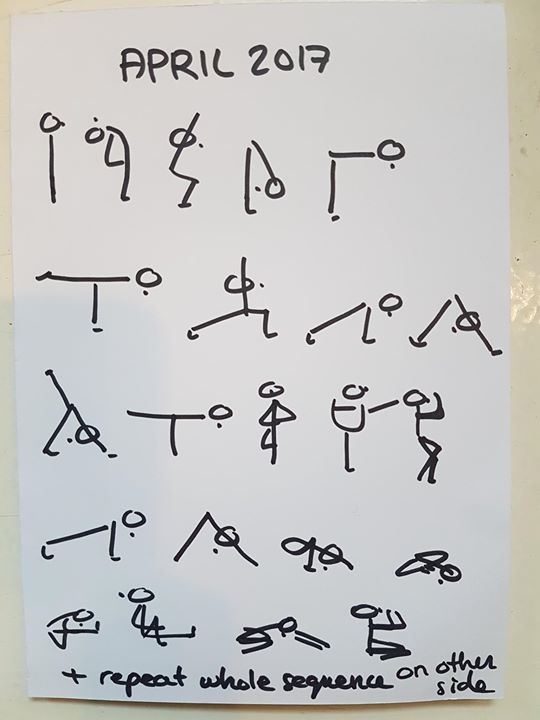 APRIL 2017
+ repeat whole sequence on other side